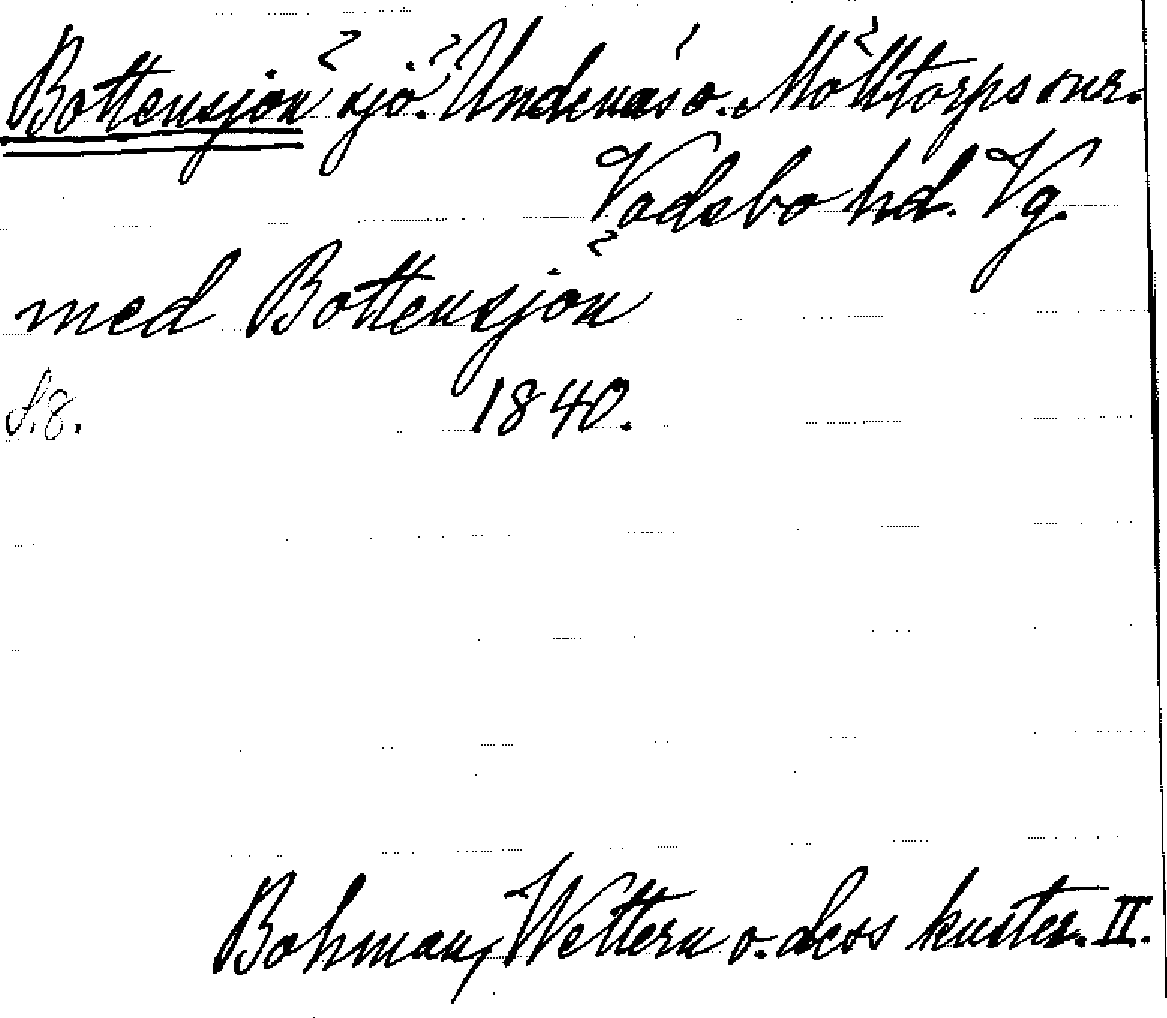 Bottensjön sjö. Undenäs o. Mölltorps snr.
Vadsbo hd. Vg.
med Bottensjön
S. 8. 1840.
Bohman, Wettern o. dess kuster. II.